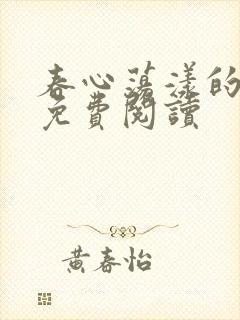 春心蕩漾的
免費閱讀
黃春怡